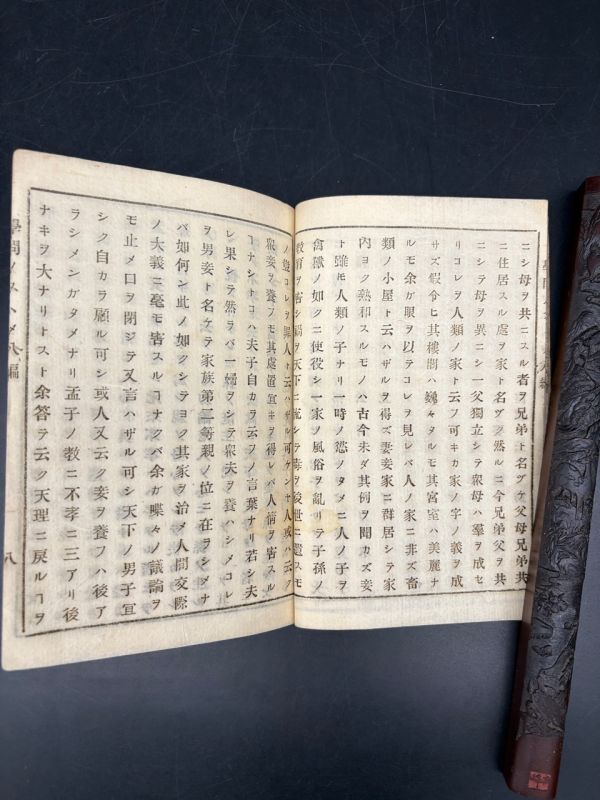 ニシ母ヲ共ニスル者ヲ兄弟ト名ヅケ父母兄弟共
ニ住居スル處ヲ家ト名ヅク然ルニ今兄弟父ヲ共
ニシテ母ヲ異ニシ一父獨立シテ衆母ハ羣ヲ成セ
リコレヲ人類ノ家ト云フ可キカ家ノ字ノ義ヲ成
サズ假令ヒ其樓閣ハ巍々タルモ其宮室ハ美麗ナ
ルモ余ガ眼ヲ以テコレヲ見レバ人ノ家ニ非ズ畜
類ノ小屋ト云ハザルヲ得ズ妻妾家ニ群居シテ家
内ヨク熟和スルモノハ古今未ダ其例ヲ聞カズ妾
ト雖モ人類ノ子ナリ一時ノ慾ノタメニ人ノ子ヲ
禽獸ノ如クニ使役シ一家ノ風俗ヲ亂リテ子孫ノ
教育ヲ害シ禍ヲ天下ニ流シテ毒ヲ後世ニ遺スモ
ノ豈コレヲ罪人ト云ハザル可ケンヤ人或ハ云ク
衆妾ヲ養フモ其處置宜キヲ得レバ人情ヲ害スル
ヿナシトコハ夫子自カラ云フノ言葉ナリ若シ夫
レ果シテ然ラバ一婦ヲシテ衆夫ヲ養ハシメコレ
ヲ男妾ト名ケテ家族第二等親ノ位ニ在ラシメナ
バ如何ン此ノ如クシテヨク其家ヲ治メ人間交際
ノ大義ニ毫モ害スルヿナクバ余ガ喋々ノ議論ヲ
モ止メ口ヲ閉ジテ又言ハザル可シ天下ノ男子宜
シク自カラ顧ル可シ或人又云ク妾ヲ養フハ後ア
ラシメンガタメナリ孟子ノ教ニ不孝ニ三アリ後
ナキヲ大ナリトスト余答テ云ク天理ニ戻ルヿヲ
學問ノスヽメ八編
八